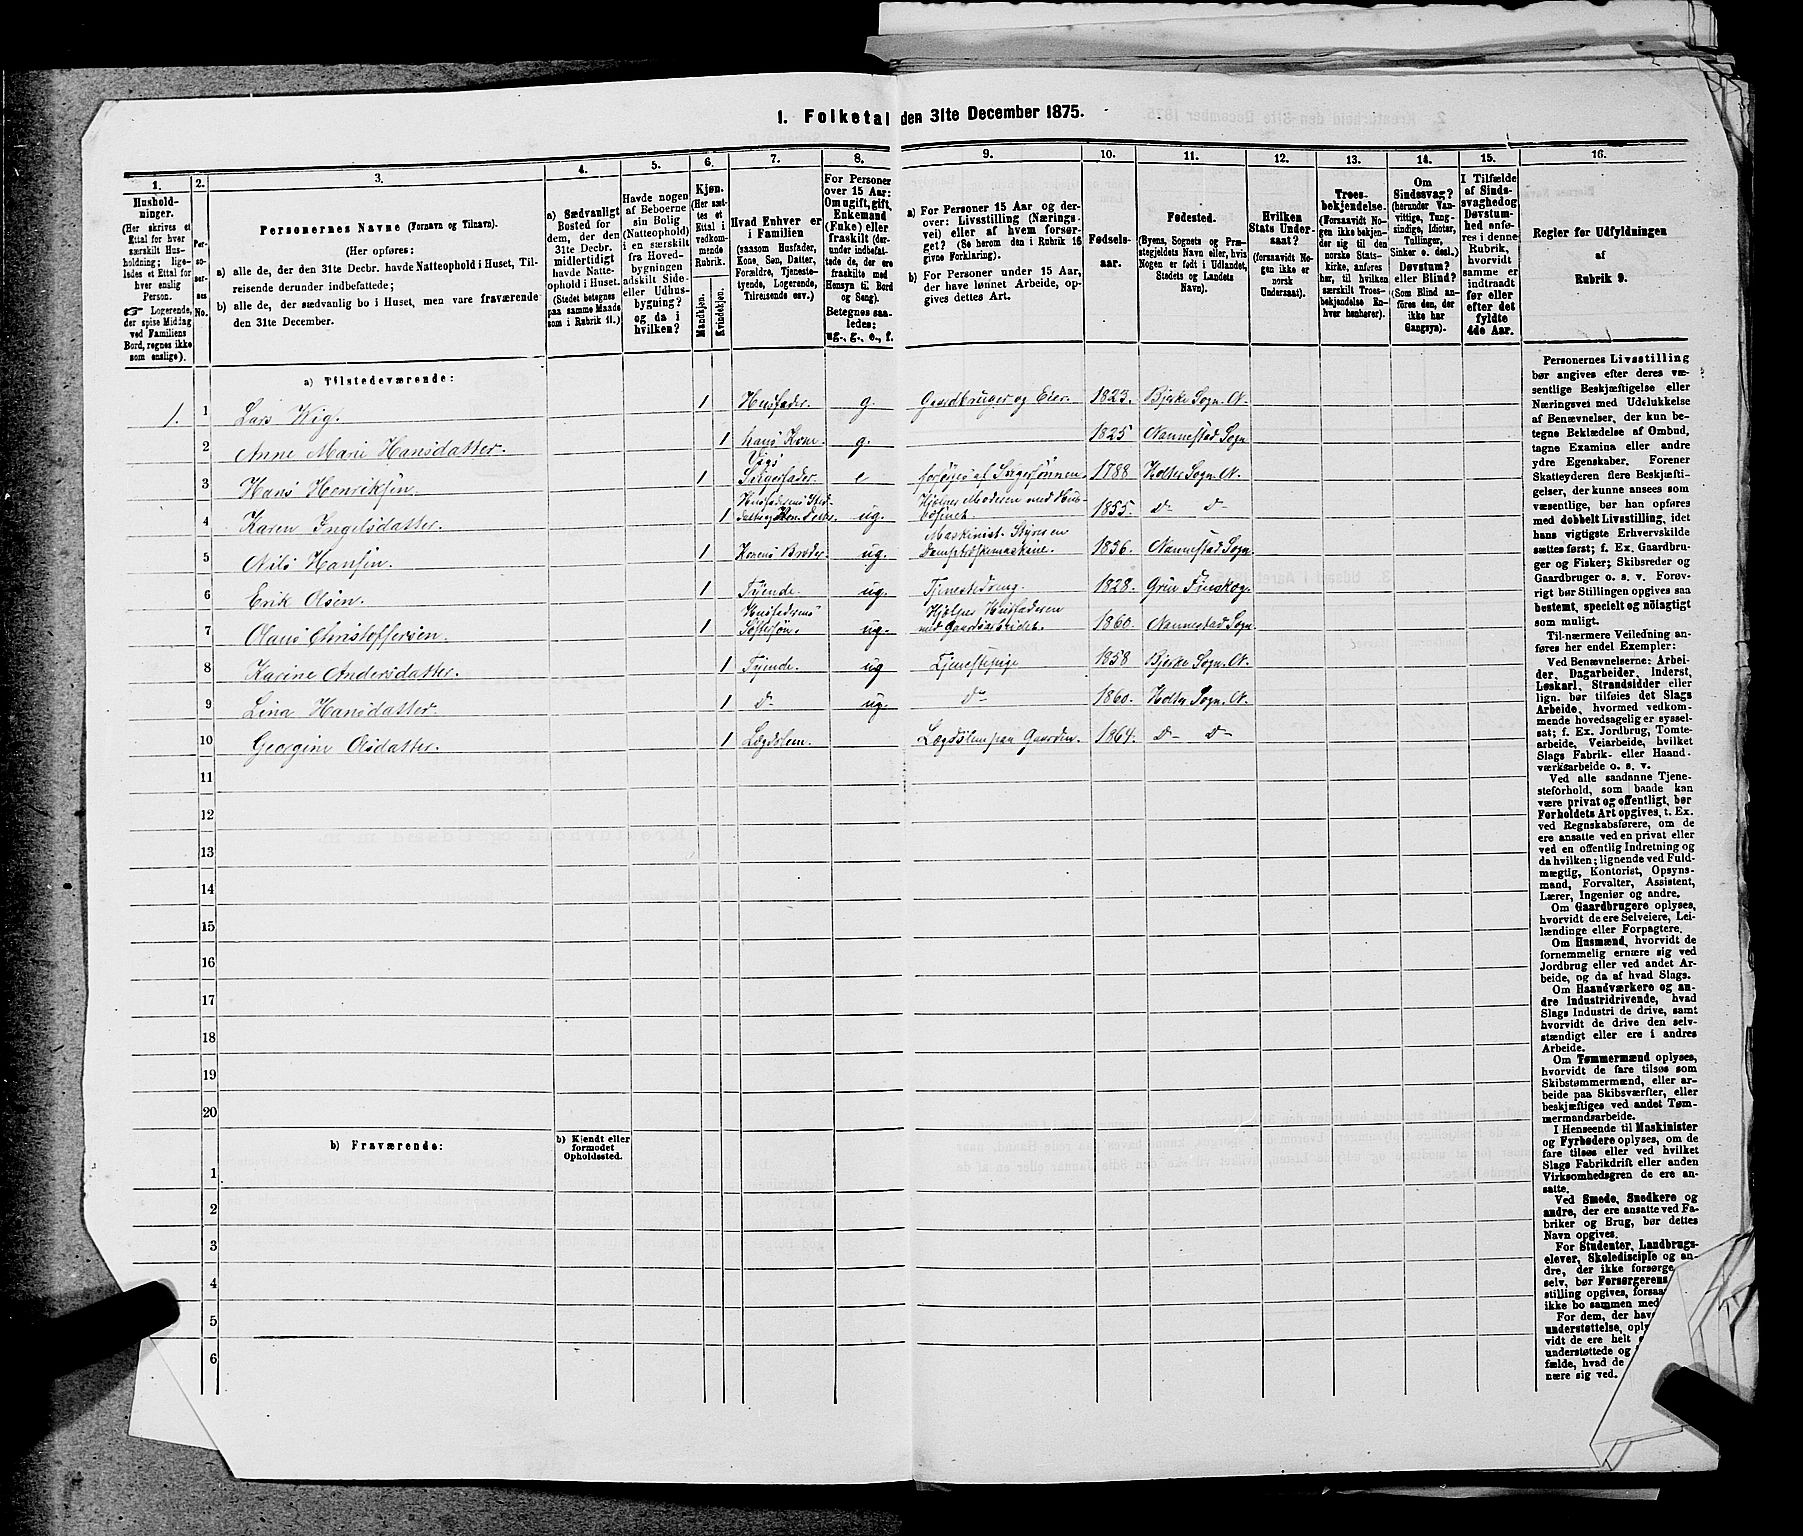 1. Folketal den 31te December 1875.
1.
Hushold-
ninger.
(Her skrives et
Ettal for hver
særskilt Hus-
holdning; lige-
ledes et Ettal for
hver enslig
Person.
☞ Logerende,
der spise Middag
ved Familiens
Bord, regnes ikke
som enslige).
2.
Per-
so-
ner-
nes
No.
3.
Personernes Navne (Fornavn og Tilnavn).
(Her opføres:
a) alle de, der den 31te Decbr. havde Natteophold i Huset, Til-
reisende derunder indbefattede;
b) alle de, der sædvanlig bo i Huset, men vare fraværende
den 31te December.
4.
a) Sædvanligt
Bosted for
dem, der den
31te Decbr.
midlertidigt
havde Natte-
ophold i Huset.
(Stedet betegnes
paa samme Maade
som i Rubrik 11.)
5.
Havde nogen
af Beboerne
sin Bolig
(Natteophold)
i en særskilt
fra Hoved-
bygningen
adskilt Side-
eller Udhus-
bygning?
og da i
hvilken?
6.
Kjøn.
(Her sæt-
tes et
Ettal i
vedkom-
mende
Rubrik.
Mandkjøn.
Kvindekjøn.
7.
Hvad Enhver er
i Familien
(saasom Husfader,
Kone, Søn, Datter,
Forældre, Tjeneste-
tyende, Logerende,
Tilreisende osv.)
8.
For Personer
over 15 Aar:
Om ugift, gift,
Enkemand
(Enke) eller
fraskilt (der-
under indbefat-
tede de, der ere
fraskilte med
Hensyn til Bord
og Seng).
Betegnes saa-
ledes:
ug., g., e., f.
9.
a) For Personer 15 Aar og der-
over: Livsstilling (Nærings-
vei) eller af hvem forsør-
get? (Se herom den i Rubrik 16
givne Forklaring).
b) For Personer under 15 Aar,
der have lønnet Arbeide, op-
gives dettes Art.
10.
Fødsels-
aar.
11.
Fødested.
(Byens, Sognets og Præ-
stegjeldets Navn eller, hvis
Nogen er født i Udlandet,
Stedets og Landets
Navn).
12.
Hvilken
Stats Under-
saat?
(forsaavidt No-
gen ikke er
norsk
Undersaat).
13.
Troes-
bekjendelse.
(Forsaavidt No-
gen ikke bekjen-
der sig til den
norske Stats-
kirke, anføres
her, til hvilken
særskilt Troes-
bekjendelse En-
hver henhører).
14.
Om
Sindssvag?
(herunder Van-
vittige, Tung-
sindige, Idioter,
Tullinger,
Sinker o. desl.)
Døvstum?
eller Blind?
(Som Blind an-
føres den, der
ikke har
Gangsyn).
15.
I Tilfælde
af Sinds-
svaghed og
Døvstum-
hed anfø-
res i denne
Rubrik,
hvorvidt
samme er
indtraadt
før eller
efter det
fyldte
4de Aar.
16.
Regler for Udfyldningen
af
Rubrik 9.
a) Tilstedeværende:
1. 1 Lars Wig. 1 Husfader. g. Gaardbruger og Eier. 1823. Bjerke Sogn. N.
2 Anne Mari Hansdatter. 1 hans Kone. g. 1825 Nannestad Sogn
3 Hans Henriksen. 1 Vigs Svigerfader. e forsørges af Svigersønnen 1788 Holter Sogn. N.
4 Karen Ingelsdatter. 1 ug. Hjelper Moderen med Hus- 1855. D- D-
5 Nils Hansen. 1 Konens Broder. ug. Maskinist. Styrer en
Damptærskemaskine. 1836. Nannestad Sogn
6 Erik Olsen. 1 Tyende. ug. Tjenestedreng. 1828. Grue Finskog.
7 Olaus Christoffersen. 1 Husfaderens
Søstersøn. ug. Hjelper Husfaderen
med Gaardsarbeidet. 1860. Nannestad Sogn.
8 Karine Andersdatter. 1 Tyende. ug Tjenestepige 1858 Bjerke Sogn. N.
9 Lina Hansdatter. 1 D- ug. D- 1860. Holter Sogn. N.
10 Georgine Olsdatter. 1 Lægdslem. Lægdslem paa Gaarden. 1864. D- D-
11
12
13
14
15
16
17
18
19
20
b) Fraværende:
b) Kjendt eller
formodet
Opholdssted.
1
2
3
4
5
6
Personernes Livsstilling
bør angives efter deres væ-
sentlige Beskjæftigelse eller
Næringsvei med Udelukkelse
af Benævnelser, der kun be-
tegne Beklædelse af Ombud,
tagne Examina eller andre
ydre Egenskaber. Forener
Skatteyderen flere Beskjæfti-
gelser, der kunne ansees som
væsentlige, bør han opføres
med dobbelt Livsstilling, idet
hans vigtigste Erhvervskilde
sættes først; f. Ex. Gaardbru-
ger og Fisker; Skibsreder og
Gaardbruger o. s. v. Forøv-
rigt bør Stillingen opgives saa
bestemt, specielt og nøiagtigt
som muligt.
Til nærmere Veiledning an-
føres her endel Exempler:
Ved Benævnelserne: Arbei-
der, Dagarbeider, Inderst,
Løskarl, Strandsidder eller
lign. bør tilføies det Slags
Arbeide, hvormed vedkom-
mende hovedsagelig er syssel-
sat; f. Ex. Jordbrug, Tomte-
arbeide, Veiarbeide, hvilket
Slags Fabrik- eller Haand-
værksarbeide o. s. v.
Ved alle saadanne Tjene-
steforhold, som baade kan
være privat og offentligt, bør
Forholdets Art opgives, t. Ex.
ved Regnskabsførere, om de
ere ansatte ved en privat eller
ved en offentlig Indretning og
da hvilken; lignende ved Fuld-
mægtig, Kontorist, Opsyns-
mand, Forvalter, Assistent,
Lærer, Ingeniør og andre.
Om Gaardbrugere oplyses,
hvorvidt de ere Selveiere, Lei-
lændinge eller Forpagtere.
Om Husmænd, hvorvidt de
fornemmelig ernære sig ved
Jordbrug eller ved andet Ar-
beide, og da af hvad Slags.
Om Haandværkere og an-
dre Industridrivende, hvad
Slags Industri de drive, samt
hvorvidt de drive den selv-
stændigt eller ere i andres
Arbeide.
Om Tømmermænd oplyses,
hvorvidt de fare tilsøs som
Skibstømmermænd, eller ar-
beide paa Skibsværfter, eller
beskjæftiges ved andet Tøm-
mermandsarbeide.
I Henseende til Maskinister
og Fyrbødere oplyses, om de
fare tilsøs eller ved hvilket
Slags Fabrikdrift eller anden
Virksomhedsgren de ere an-
satte.
Ved Smede, Snedkere og
andre, der ere ansatte ved Fa-
briker og Brug, bør dettes
Navn opgives.
For Studenter, Landbrugs-
elever, Skoledisciple og an-
dre, der ikke forsørge
selv, bør Forsørgerens
stilling opgives, forsaa
ikke bo sammen med
For dem, der hav
understøttelse, opl
vidt de ere helt
understøttede og
fælde, hvad de
nære sig ved.